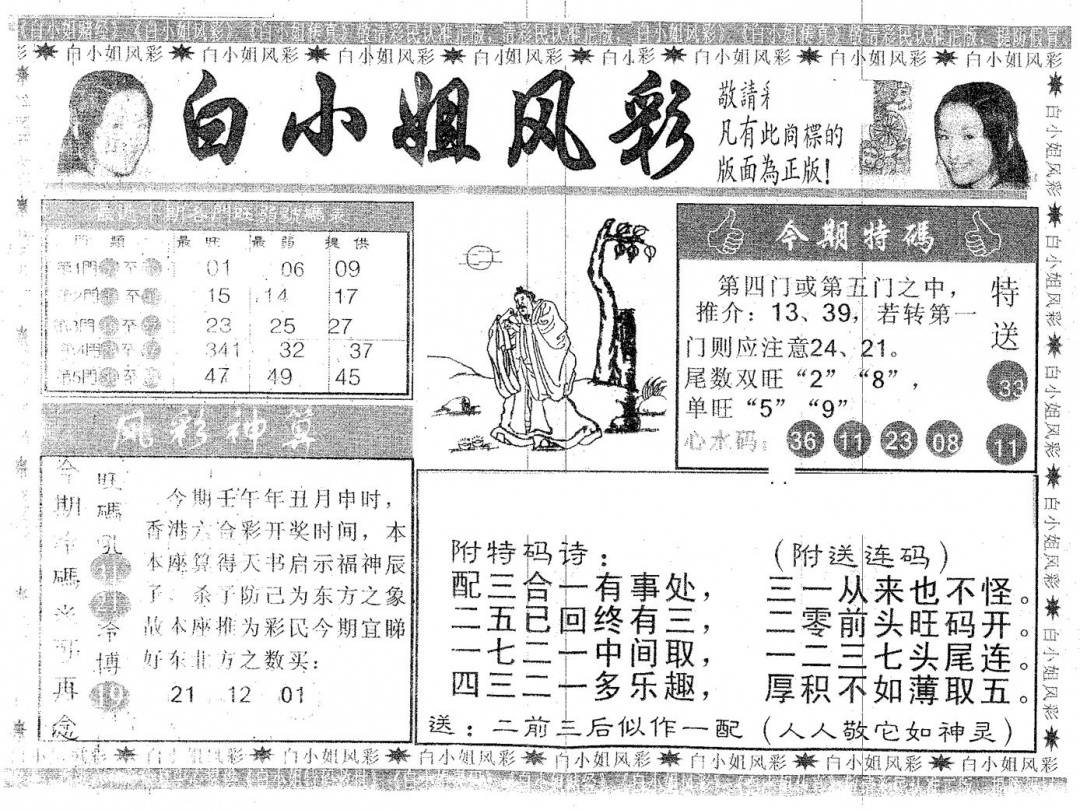 白小姐风彩 白小姐风彩 白小姐风彩 白小姐风彩 白小姐风彩 白小姐风彩 白小姐风彩
白小姐风彩
敬請彩
凡有此商標的
版面為正版!
門 類 最旺 最弱 提供
第1門 至 01 06 09
第2門 至 15 14 17
第3門 至 23 25 27
第4門 至 341 32 37
第5門 至 47 49 45
今期特碼
第四门或第五门之中,
推介:13、39,若转第一
门则应注意24、21。
尾数双旺“2”“8”,
单旺“5”“9”
心水码: 36 11 23 08
特送
33
11
风彩神算
今期冷碼米可再念
旺碼吼
31
21
冷博
19
今期壬午年丑月申时,
香港六合彩开奖时间,本
本座算得天书启示福神辰
子、杀子防己为东方之象
故本座推为彩民今期宜睇
好东北方之数买:
21 12 01
附特码诗:
配三合一有事处,
二五已回终有三,
一七二一中间取,
四三二一多乐趣,
(附送连码)
三一从来也不怪。
二零前头旺码开。
一二三七头尾连。
厚积不如薄取五。
送:二前三后似作一配(人人敬它如神灵)
白小姐风彩 白小姐风彩 白小姐风彩 白小姐风彩 白小姐风彩 白小姐风彩 白小姐风彩
白小姐风彩 白小姐风彩 白小姐风彩 白小姐风彩 白小姐风彩